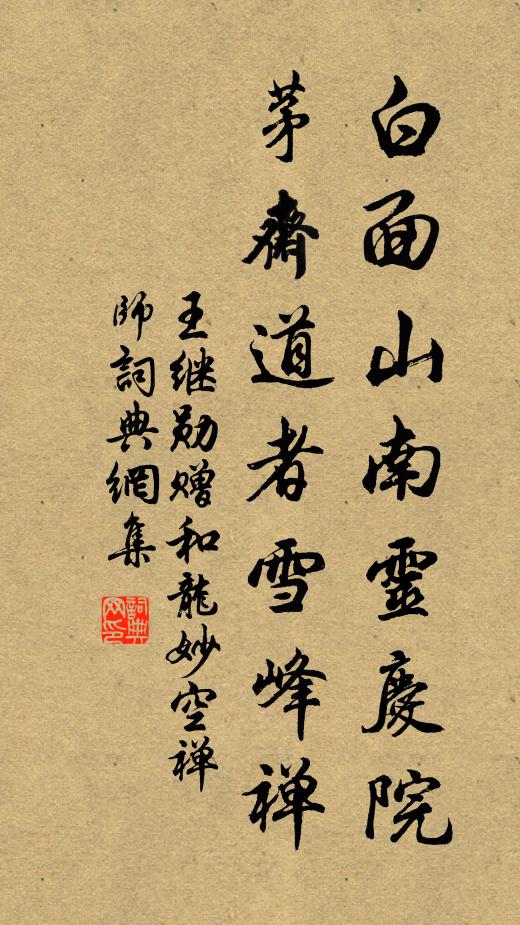 白面山南靈慶院
茅齋道者雪峰禅
王继勋赠和龍妙空禅
師詞典網集
詞典
网印